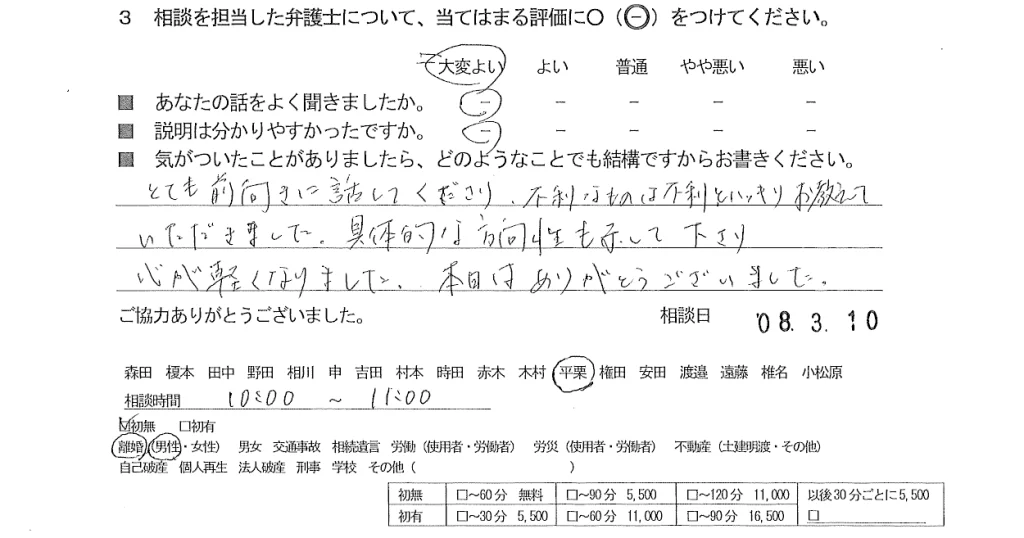 3 相談を担当した弁護士について、当てはまる評価に〇（㊀）をつけてください。
大変よい よい 普通 やや悪い 悪い
■ あなたの話をよく聞きましたか。 － － － － －
■ 説明は分かりやすかったですか。 － － － － －
■ 気がついたことがありましたら、どのようなことでも結構ですからお書きください。
とても前向きに話してくださり、不利なものは不利とハッキリお教えして
いただきました。具体的な方向性も示して下さり
心が軽くなりました。本日はありがとうございました。
ご協力ありがとうございました。 相談日 '08.3.10
森田 榎本 田中 野田 相川 申 吉田 村本 時田 赤木 木村 平栗 権田 安田 渡邉 遠藤 椎名 小松原
相談時間 10:00 ～ 11:00
☑初無 □初有
離婚（男性・女性） 男女 交通事故 相続遺言 労働（使用者・労働者） 労災（使用者・労働者） 不動産（土建明渡・その他）
自己破産 個人再生 法人破産 刑事 学校 その他（ ）
初無 □～60分 無料 □～90分 5,500 □～120分 11,000 以後30分ごとに5,500
初有 □～30分 5,500 □～60分 11,000 □～90分 16,500 □